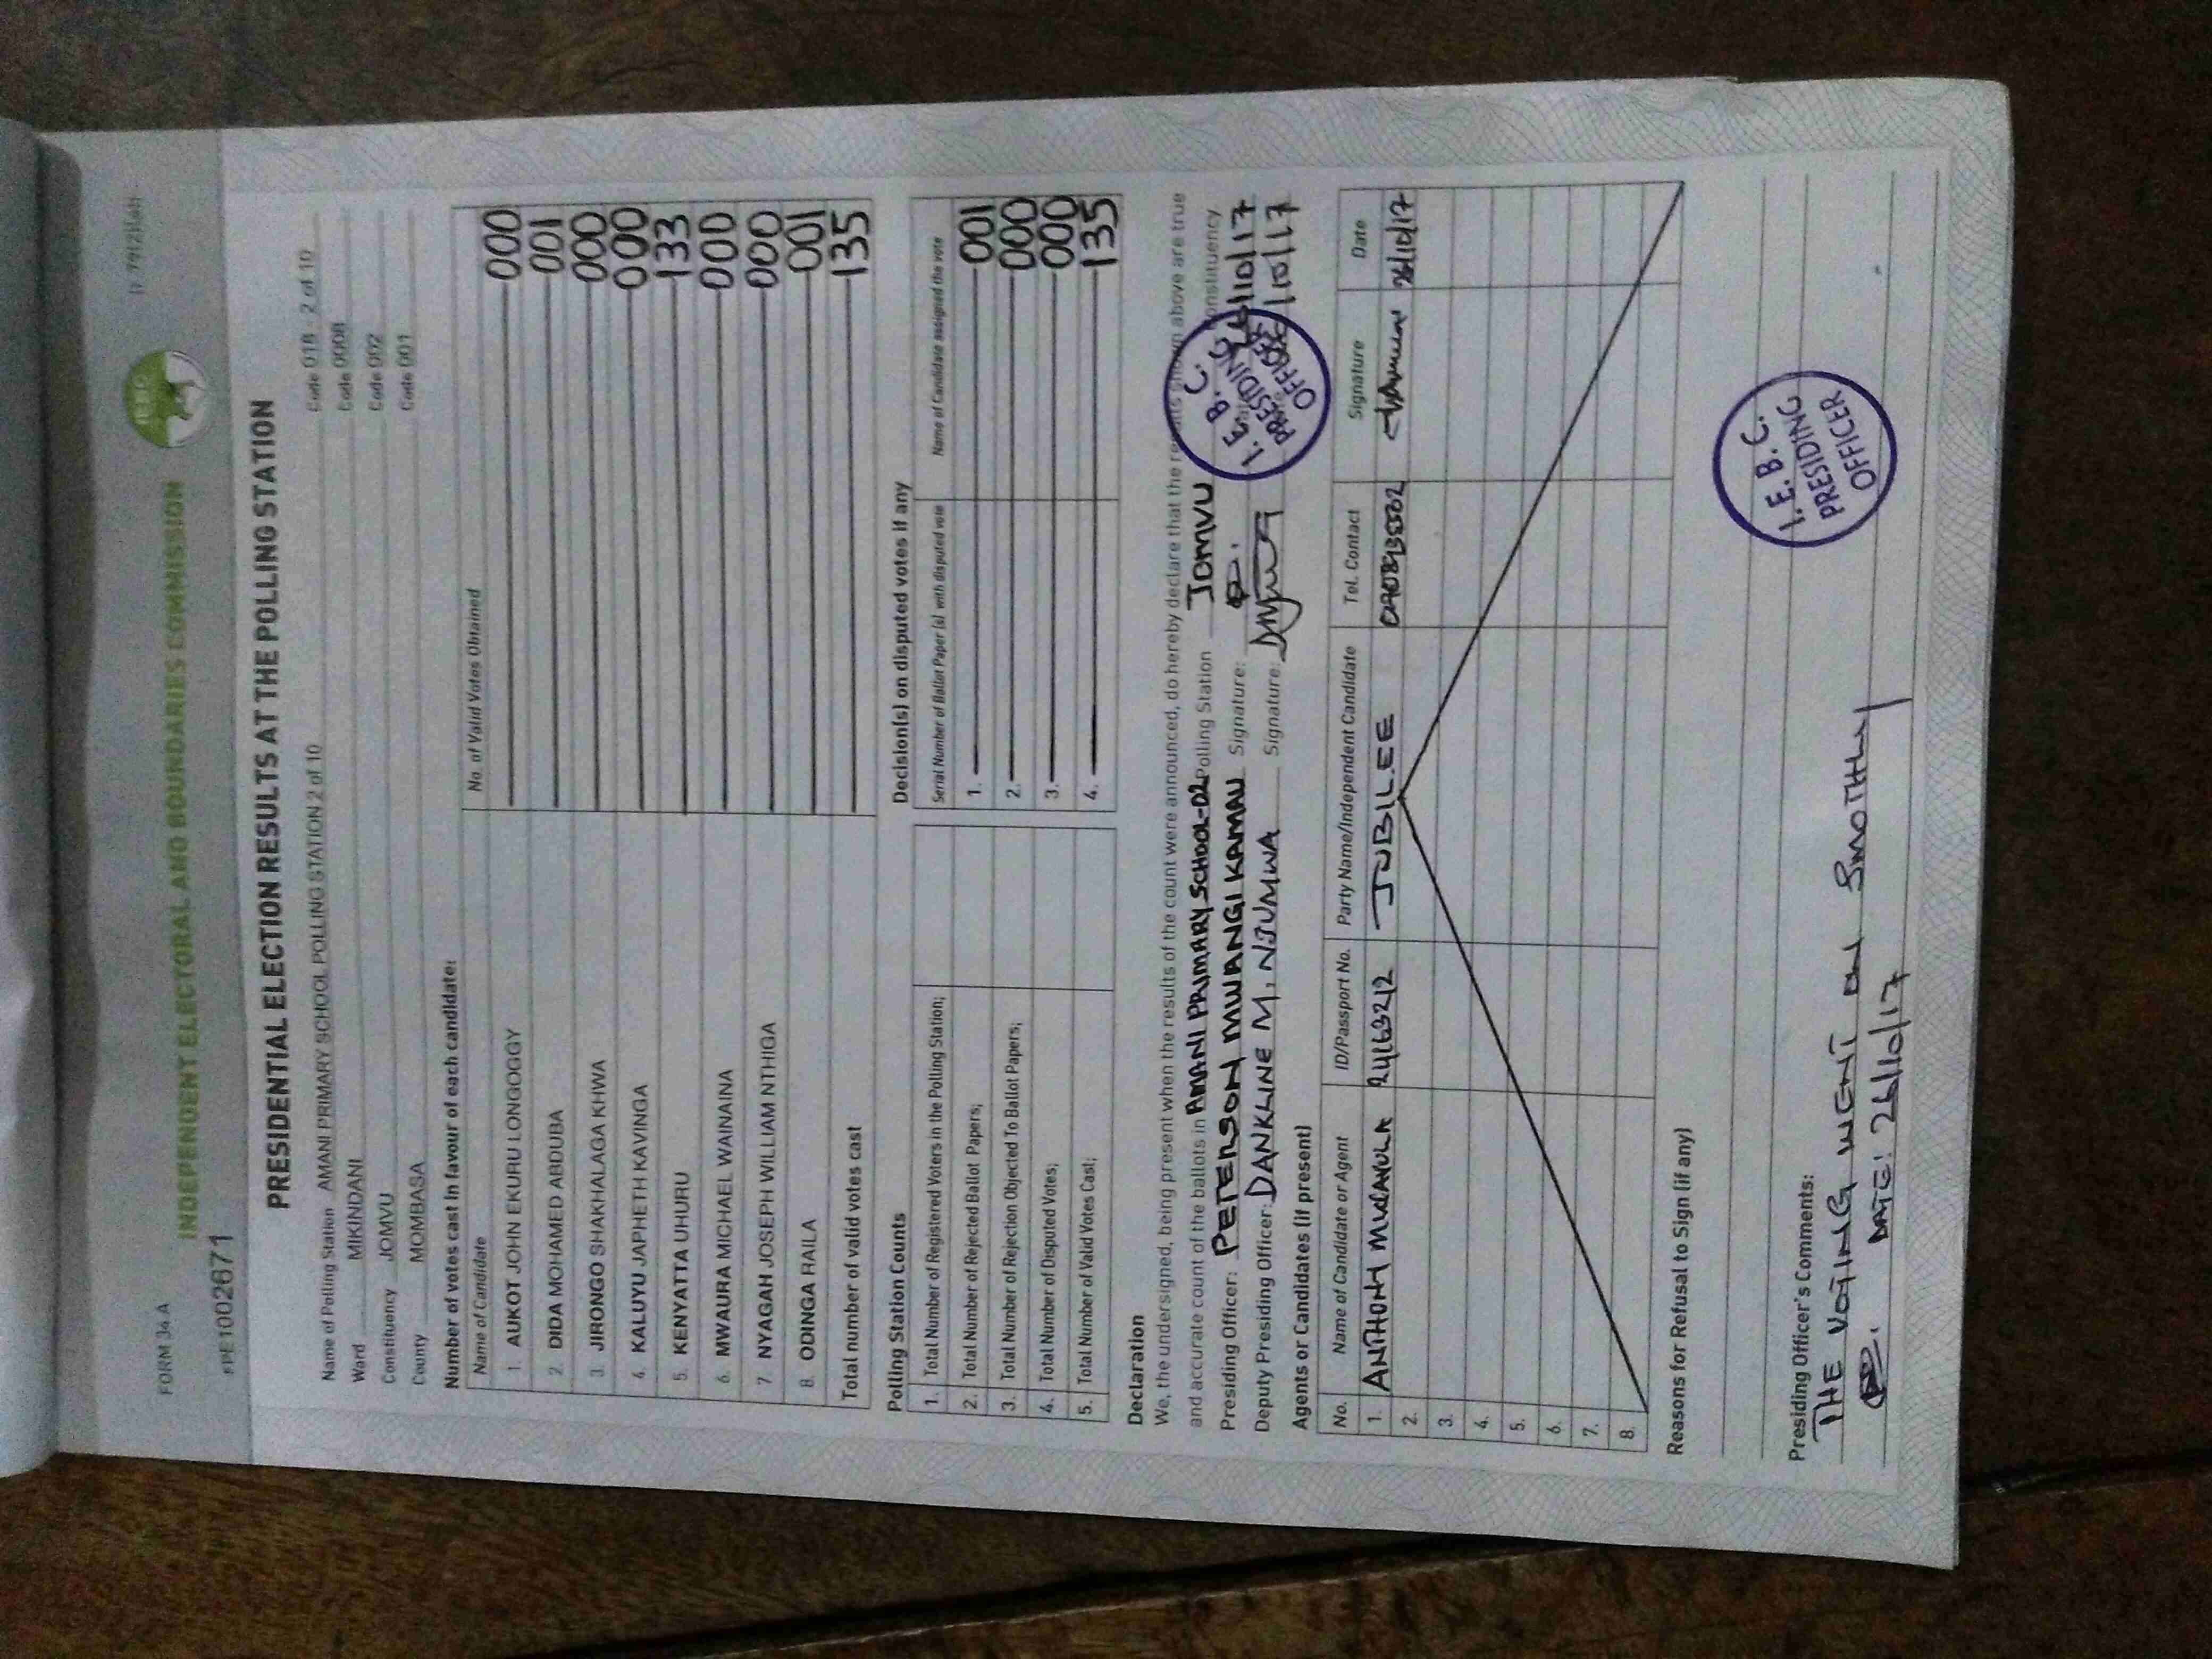 FORM 34 A
INDEPENDENT ELECTORAL AND BOUNDARIES COMMISSION
IEBC
PRESIDENTIAL ELECTION RESULTS AT THE POLLING STATION
Name of Polling Station AMANI PRIMARY SCHOOL POLLING STATION 2 of 10 Code 018 - 2 of 10
Ward MIKINDANI Code 0008
Constituency JOMVU Code 002
County MOMBASA Code 001
Number of votes cast in favour of each candidate:
Name of Candidate No. of Valid Votes Obtained
1. AUKOT JOHN EKURU LONGOGGY 000
2. DIDA MOHAMED ABDUBA 001
3. JIRONGO SHAKHALAGA KHWA 000
4. KALUYU JAPHETH KAVINGA 000
5. KENYATTA UHURU 133
6. MWAURA MICHAEL WAINAINA 000
7. NYAGAH JOSEPH WILLIAM NTHIGA 000
8. ODINGA RAILA 001
Total number of valid votes cast 135
Polling Station Counts
1. Total Number of Registered Voters in the Polling Station;
2. Total Number of Rejected Ballot Papers;
3. Total Number of Rejection Objected To Ballot Papers;
4. Total Number of Disputed Votes;
5. Total Number of Valid Votes Cast;
Decision(s) on disputed votes if any
Serial Number of Ballot Paper (s) with disputed vote Name of Candidate assigned the vote
1. 001
2. 000
3. 000
4. 135
Declaration
We, the undersigned, being present when the results of the count were announced, do hereby declare that the results shown above are true
and accurate count of the ballots in AMANI PRIMARY SCHOOL-02 Polling Station JOMVU Constituency
Presiding Officer: PETERSON MWANGI KAMAU Signature:
Deputy Presiding Officer: DANKLINE M, NJUMWA Signature:
I. E. B. C.
PRESIDING
OFFICER
Agents or Candidates (if present)
No. Name of Candidate or Agent ID/Passport No. Party Name/Independent Candidate Tel. Contact Signature Date
1. ANTHONY JUBILEE 26/10/17
2.
3.
4.
5.
6.
7.
8.
Reasons for Refusal to Sign (if any)
Presiding Officer's Comments:
THE VOTING WENT ON SMOTHLY
DATE: 26/10/17
I. E. B. C.
PRESIDING
OFFICER